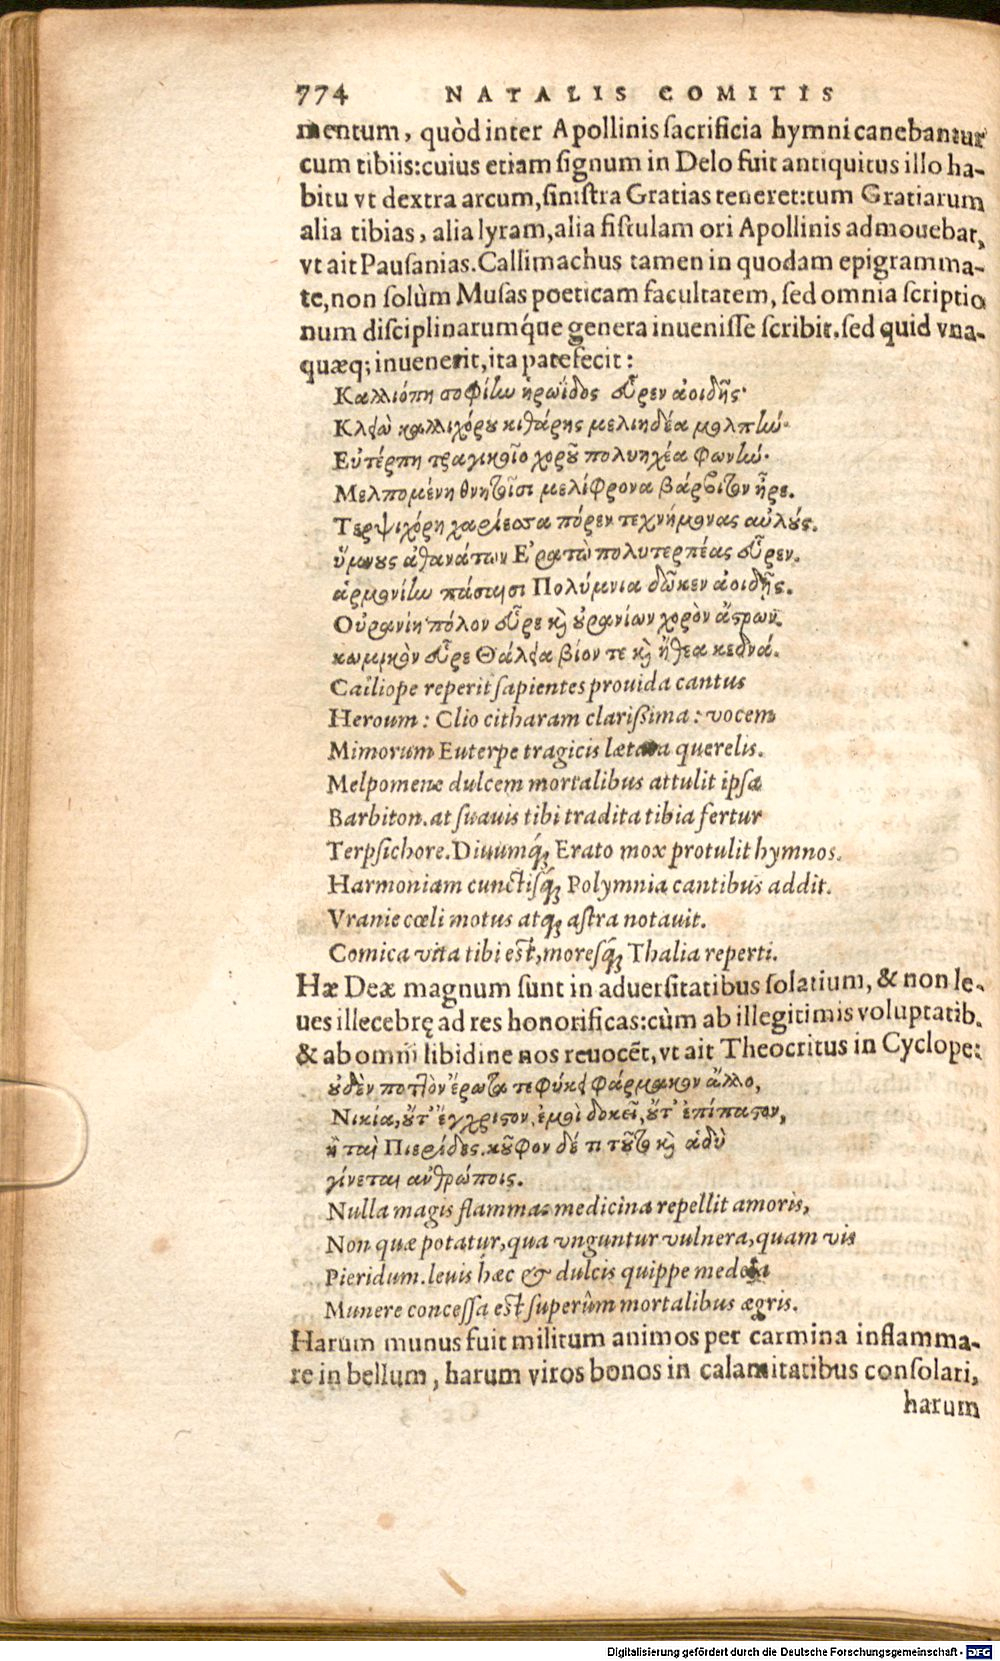 774 NATALIS COMITIS
mentum, quòd inter Apollinis sacrificia hymni canebantur
cum tibiis: cuius etiam signum in Delo fuit antiquitus illo ha-
bitu vt dextra arcum, sinistra Gratias teneret: tum Gratiarum
alia tibias, alia lyram, alia fistulam ori Apollinis admouebat,
vt ait Pausanias. Callimachus tamen in quodam epigramma-
te, non solùm Musas poeticam facultatem, sed omnia scriptio
num disciplinarumq́ue genera inuenisse scribit. sed quid vna-
quæq; inuenerit, ita patefecit:
Καλλιόπη σοφίην ἡρωΐδος εὗρεν ἀοιδῆς·
Κλειὼ καλλιχόρου κιθάρης μελιηδέα μολπήν·
Εὐτέρπη τραγικοῖο χοροῦ πολυηχέα φωνήν·
Μελπομένη θνητοῖσι μελίφρονα βάρβιτον ἦρε.
Τερψιχόρη χαρίεσσα πόρεν τεχνήμονας αὐλούς.
ὕμνους ἀθανάτων Ἐρατὼ πολυτερπέας εὗρεν.
ἁρμονίην πάσαισι Πολύμνια δῶκεν ἀοιδῆς.
Οὐρανίη πόλον εὗρε καὶ οὐρανίων χορὸν ἄστρων.
κωμικὸν εὗρε Θάλεια βίον τε καὶ ἤθεα κεδνά.
Calliope reperit sapientes prouida cantus
Heroum: Clio citharam clarissima: vocem
Mimorum Euterpe tragicis lætata querelis.
Melpomene dulcem mortalibus attulit ipsa
Barbiton. at suauis tibi tradita tibia fertur
Terpsichore. Diuumq́; Erato mox protulit hymnos.
Harmoniam cunctisq́; Polymnia cantibus addit.
Vranie cœli motus atq; astra notauit.
Comica vita tibi est, moresq́; Thalia reperti.
Hæ Deæ magnum sunt in aduersitatibus solatium, & non le-
ues illecebrę ad res honorificas: cùm ab illegitimis voluptatib.
& ab omni libidine nos reuocẽt, vt ait Theocritus in Cyclope:
οὐδὲν ποττὸν ἔρωτα πεφύκει φάρμακον ἄλλο,
Νικία, οὔτ' ἔγχριστον, ἐμοὶ δοκεῖ, οὔτ' ἐπίπαστον,
ἢ ταὶ Πιερίδες. κοῦφον δέ τι τοῦτο καὶ ἁδὺ
γίνεται ἀνθρώποις.
Nulla magis flammas medicina repellit amoris,
Non quæ potatur, qua vnguntur vulnera, quam vis
Pieridum. leuis hæc & dulcis quippe medela
Munere concessa est superûm mortalibus ægris.
Harum munus fuit militum animos per carmina inflamma-
re in bellum, harum viros bonos in calamitatibus consolari,
harum
Digitalisierung gefördert durch die Deutsche Forschungsgemeinschaft - DFG